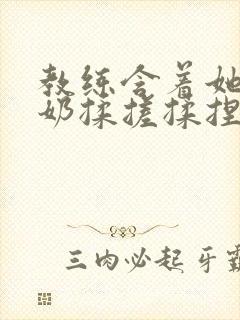 教练含着她
奶揉搓揉捏
三肉必起牙霸